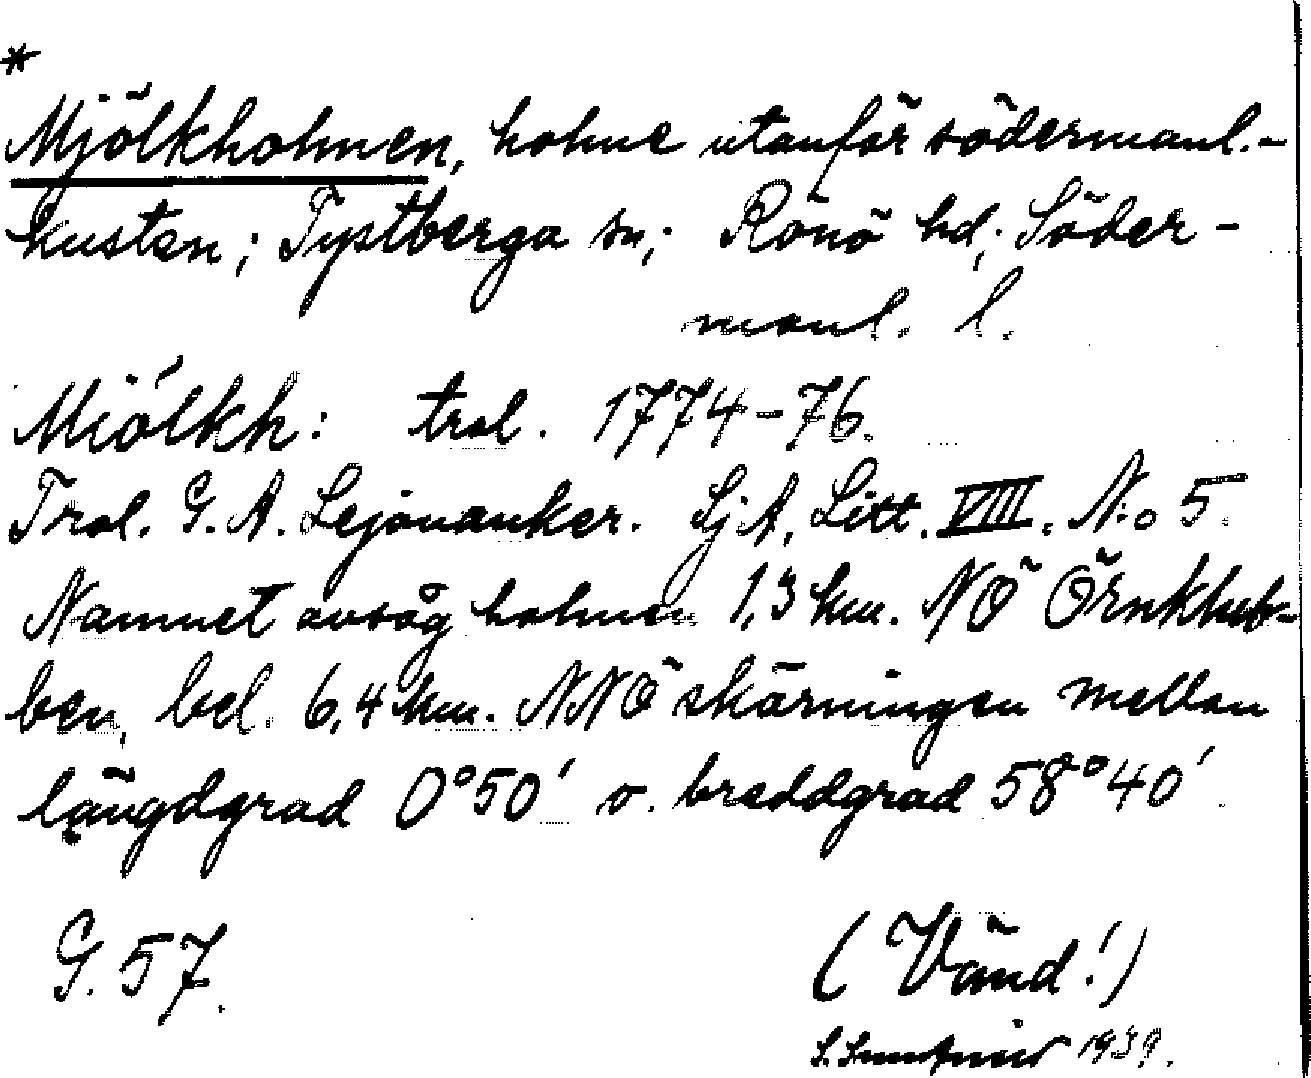 *
Mjölkholmen, holme utanför södermanl.-
kusten; Tystberga sn; Rönö hd; Söder-
manl. l.
Miölkh: trol. 1774-76.
Trol. G. A. Lejonanker. SjA, Litt. VIII. N:o 5.
Namnet avsåg holmen 1,3 km. NÖ Örnklub-
ben, bel. 6,4 km. NNÖ skärningen mellan
längdgrad 0°50' o. breddgrad 58°40'
G. 57.
(Vänd!)
S. 1939.